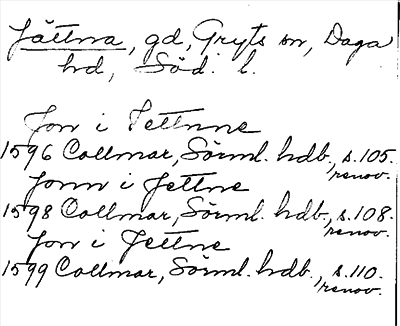 Jättna, gd, Gryts sn, Daga
hd, Söd. l.
Jon i Jettnne
1596 Collmar, Sörml. hdb., s. 105.
renov.
Jonn i Jettne
1598 Collmar, Sörml. hdb., s. 108.
renov.
Jon i Jettne
1599 Collmar, Sörml. hdb., s. 110.
renov.